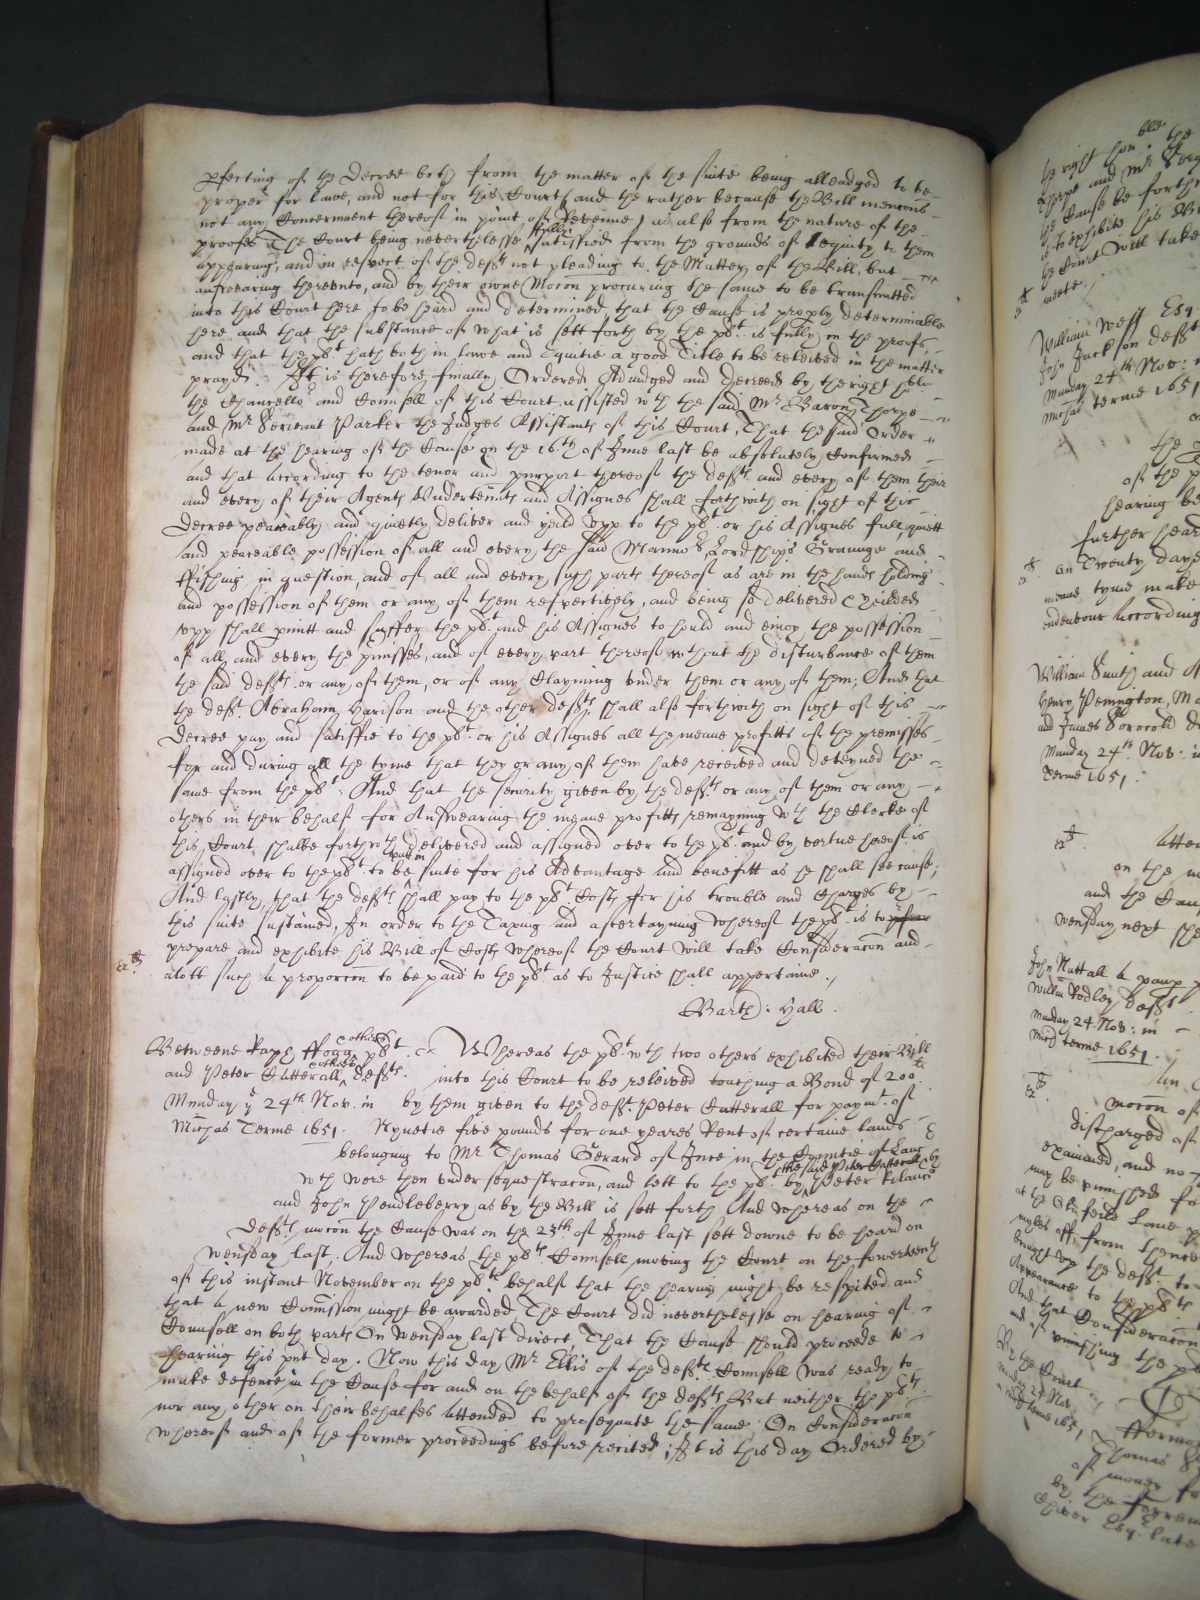 pfecting of the Decree both from the matter of the suite being alleadged to be
proper for Lawe, and not for this Court (and the rather because the Bill mencons
not any Concernment hereof in point of Revenue) as also from the nature of the
proofes The Court being neverthelesse fully satisfied from the grounds of Equity to them
appearing, and in respect of the defts not pleading to the Matter of the Bill, but
answearing thereunto, and by their owne Mocon procuring the same to be transmitted
into this Court here to be heard and determined, that the Cause is proply determinable
here and that the substance of what is sett forth by the plt is fully in the proofs,
and that the plt hath both in Lawe and Equitie a good Title to be releived in the matter
prayd. It is therefore finally Ordered Adiudged and decreed by the right hoble
the Chancellor and Counsell of this Court, assisted wth the said Mr Baron Thorpe
and Mr Serieant Parker the Judges Assistants of this Court, That the said Order
made at the hearing of the Cause on the 16th of June last be absolutely Confirmed
and that according to the tenor and purport thereof the defts and every of them their
and every of their Agents Undertennts and Assignes shall forthwith on sight of this
Decree peaceably and quietly deliver and yeild upp to the plt or his Assignes full, quiett
and peaceable possession of all and every the said Mannor, Lordships Graunge and
ffishing in question, and of all and every such parts thereof as are in the hands holding
and possession of them or any of them respectively, and being so delivered & yeilded
upp shall pmitt and suffer the plt and his Assignes to hould and enioy the possession
of all and every the pmisses, and of every part thereof without the disturbance of them
the said defts or any of them, or of any Clayming under them or any of them; And that
the deft Abraham Harison and the other defts shall also forthwith on sight of this
Decree pay and satisfie to the plt or his Assignes all the meane profitts of the premisses
for and during all the tyme that they or any of them have received and deteyned the
same from the plt: And that the security given by the defts or any of them or any
others in their behalf for Answearing the meane profitts remayning wth the Clerke of
this Court shalbe forthwth delivered and assigned over to the plt and by vertue hereof is
assigned over to the plt to be putt in suite for his Advantage and benefitt as he shall see cause;
And lastly, that the defts shall pay to the plt Costs for his trouble and Charges by
this suite sustained, In order to the Taxing and ascertayning whereof the plt is to
prepare and exhibite his Bill of Costs whereof the Court will take Consideracon and
alott such a proporcon to be paid to the plt as to Justice shall appertaine.
Barth: Hall.
Betweene Raph ffogg & others plts
and Peter Catterall & others defts.
Munday ye 24th Nov. in
Michas Terme 1651.
Whereas the plt wth two others exhibited their Bill
into this Court to be releived touching a Bond of 200li
by them given to the deft Peter Catterall for paymt of
Nynetie five pounds for one yeares Rent of certaine lands
belonging to Mr Thomas Gerard of Ince in the Countie of Lanc
wch were then under sequestracon, and lett to the plt by the said Peter Catterall & by Peter
and John Pendleberry as by the Bill is sett forth And whereas on the
defts mocon the Cause was on the 25th of June last sett downe to be heard on
wensday last, And whereas the plts Counsell moving the Court on the fowerteenth
of this instant November on the plts behalf that the hearing might be respited and
that a new Comission might be awarded, The Court did neverthelesse on hearing of
Counsell on both parts On wensday last direct, That the Cause should proceede to
hearing this pnt day. Now this day Mr Ellis of the defts Counsell was ready to
make defence in the Cause for and on the behalf of the defts But neither the plts
nor any other on their behalfes attended to prosequute the same On Consideracon
whereof and of the former proceedings before recited; It is this day Ordered by
the right honble the
he Court will take
William
John Jackson deft
Munday 24th Nov: in
Michas terme 1651
hearing be
further hear
on Twenty dayes
meane tyme make
endeavour according
William Smith and
Henry Penington,
Munday 24th Nov: in
Terme 1651:
and the Cau
wensday next
John Nuttall a paup
Munday 24 Nov: in
Mich terme 1651.
mocon of
discharged of
examined, and no
may be punished fo
brought upp the deft to
Appearance to the plts
And that Consideracon
By the Court
Thomas
of money